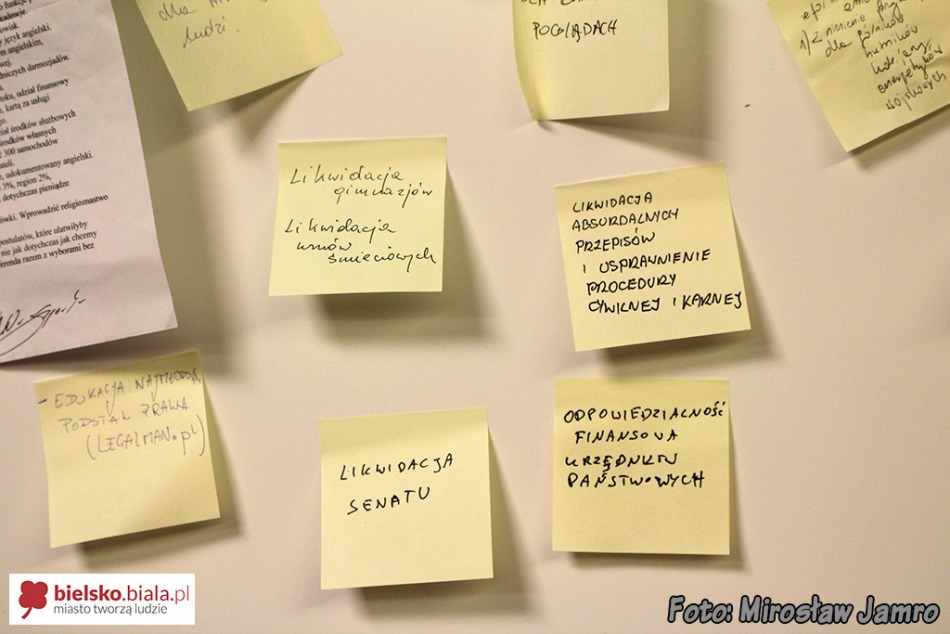 dla
ludzi!
POGLĄDACH
1/2
dla górników
hutników
energetyków
język angielski.
angielskim,
darmozjadów.
udział finansowy
kartą za usługi
środków służbowych
środków własnych
300 samochodów
udokumentowany angielski.
3%, region 2%,
dotychczas pieniądze
Wprowadzić religioznawstwo
postulatów, które ułatwiłyby
nie jak dotychczas jak chcemy
razem z wyborami bez
Likwidacja
gimnazjów
Likwidacja
umów
śmieciowych
LIKWIDACJA
ABSURDALNYCH
PRZEPISÓW
I USPRAWNIENIE
PROCEDURY
CYWILNEJ I KARNEJ
- EDUKACJA NAJMŁODSZ.
PODSTAW PRAWA
(LEGALMAN.pl)
LIKWIDACJA
SENATU
ODPOWIEDZIALNOŚĆ
FINANSOWA
URZĘDNIKÓW
PAŃSTWOWYCH
bielsko.biala.pl
miasto tworzą ludzie
Foto: Mirosław Jamro